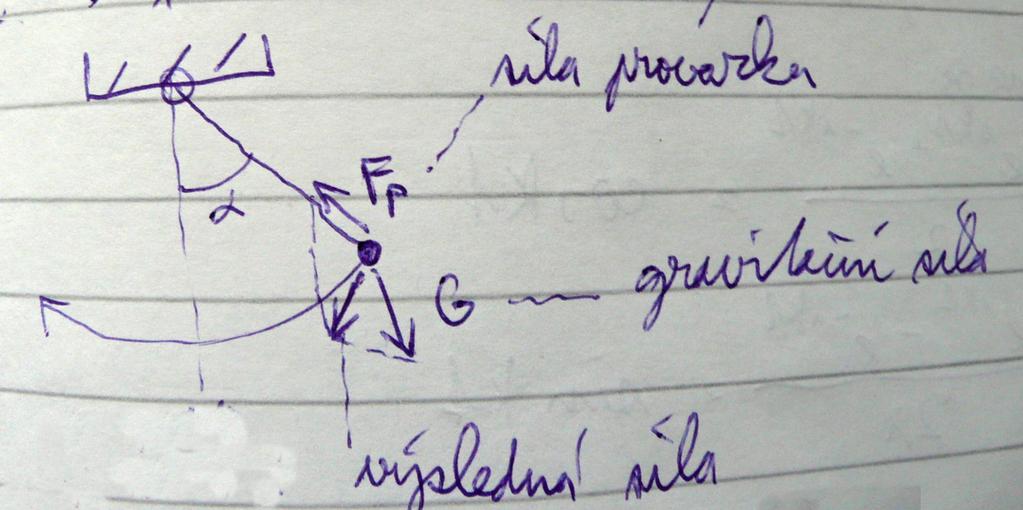 síla provázku
α
F_P
G gravitační síla
výsledná síla